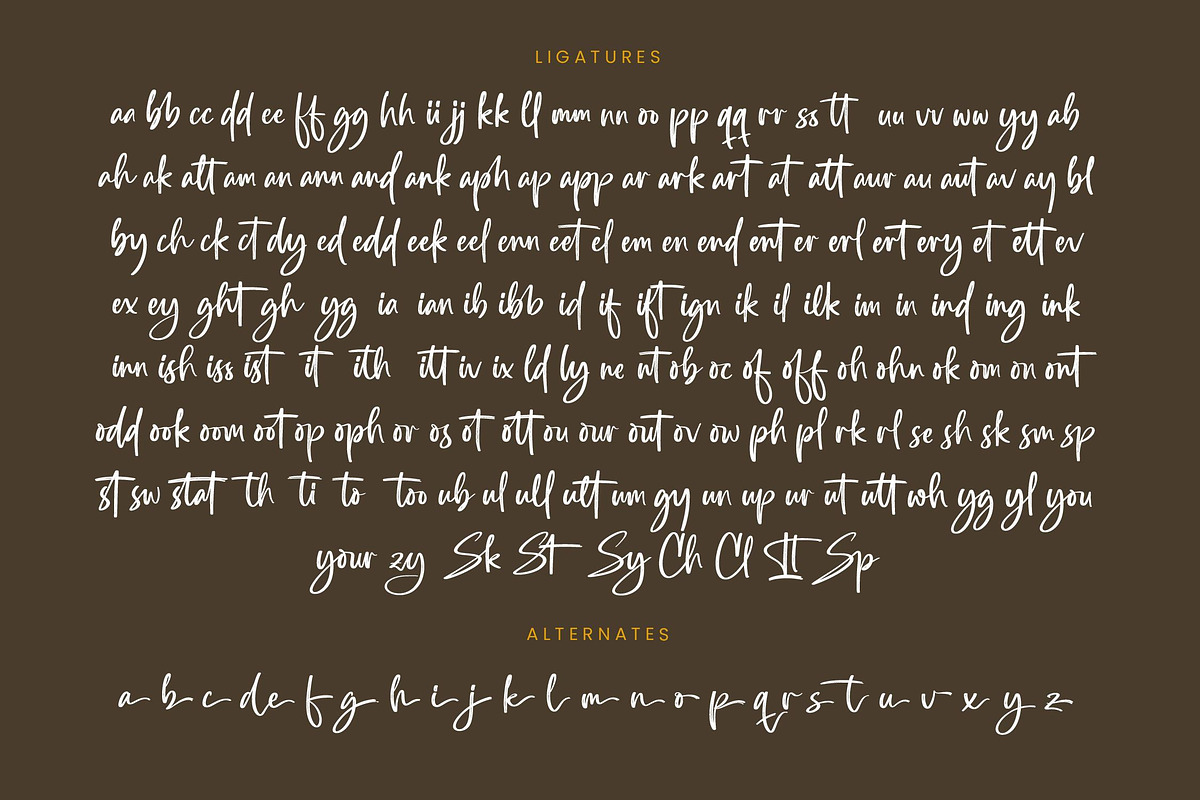 LIGATURES
aa bb cc dd ee ff gg hh ii jj kk ll mm nn oo pp qq rr ss tt uu vv ww yy ab
ah ak att am an ann and ank aph ap app ar ark art at att aur au aut av ay bl
by ch ck ct dy ed edd eek eel enn eet el em en end ent er erl ert ery et ett ev
ex ey ght gh yg ia ian ib ibb id if ift ign ik il ilk im in ind ing ink
inn ish iss ist it ith itt iv ix ld ly ne nt ob oc of off oh ohn ok om on ont
odd ook oom oot op oph or os ot ott ou our out ov ow ph pl rk rl se sh sk sm sp
st sw stat th ti to too ub ul ull ult um gy un up ur ut utt wh yg yl you
your zy Sk St Sy Ch Cl It Sp
ALTERNATES
a b c d e f g h i j k l m n o p q r s t u v x y z